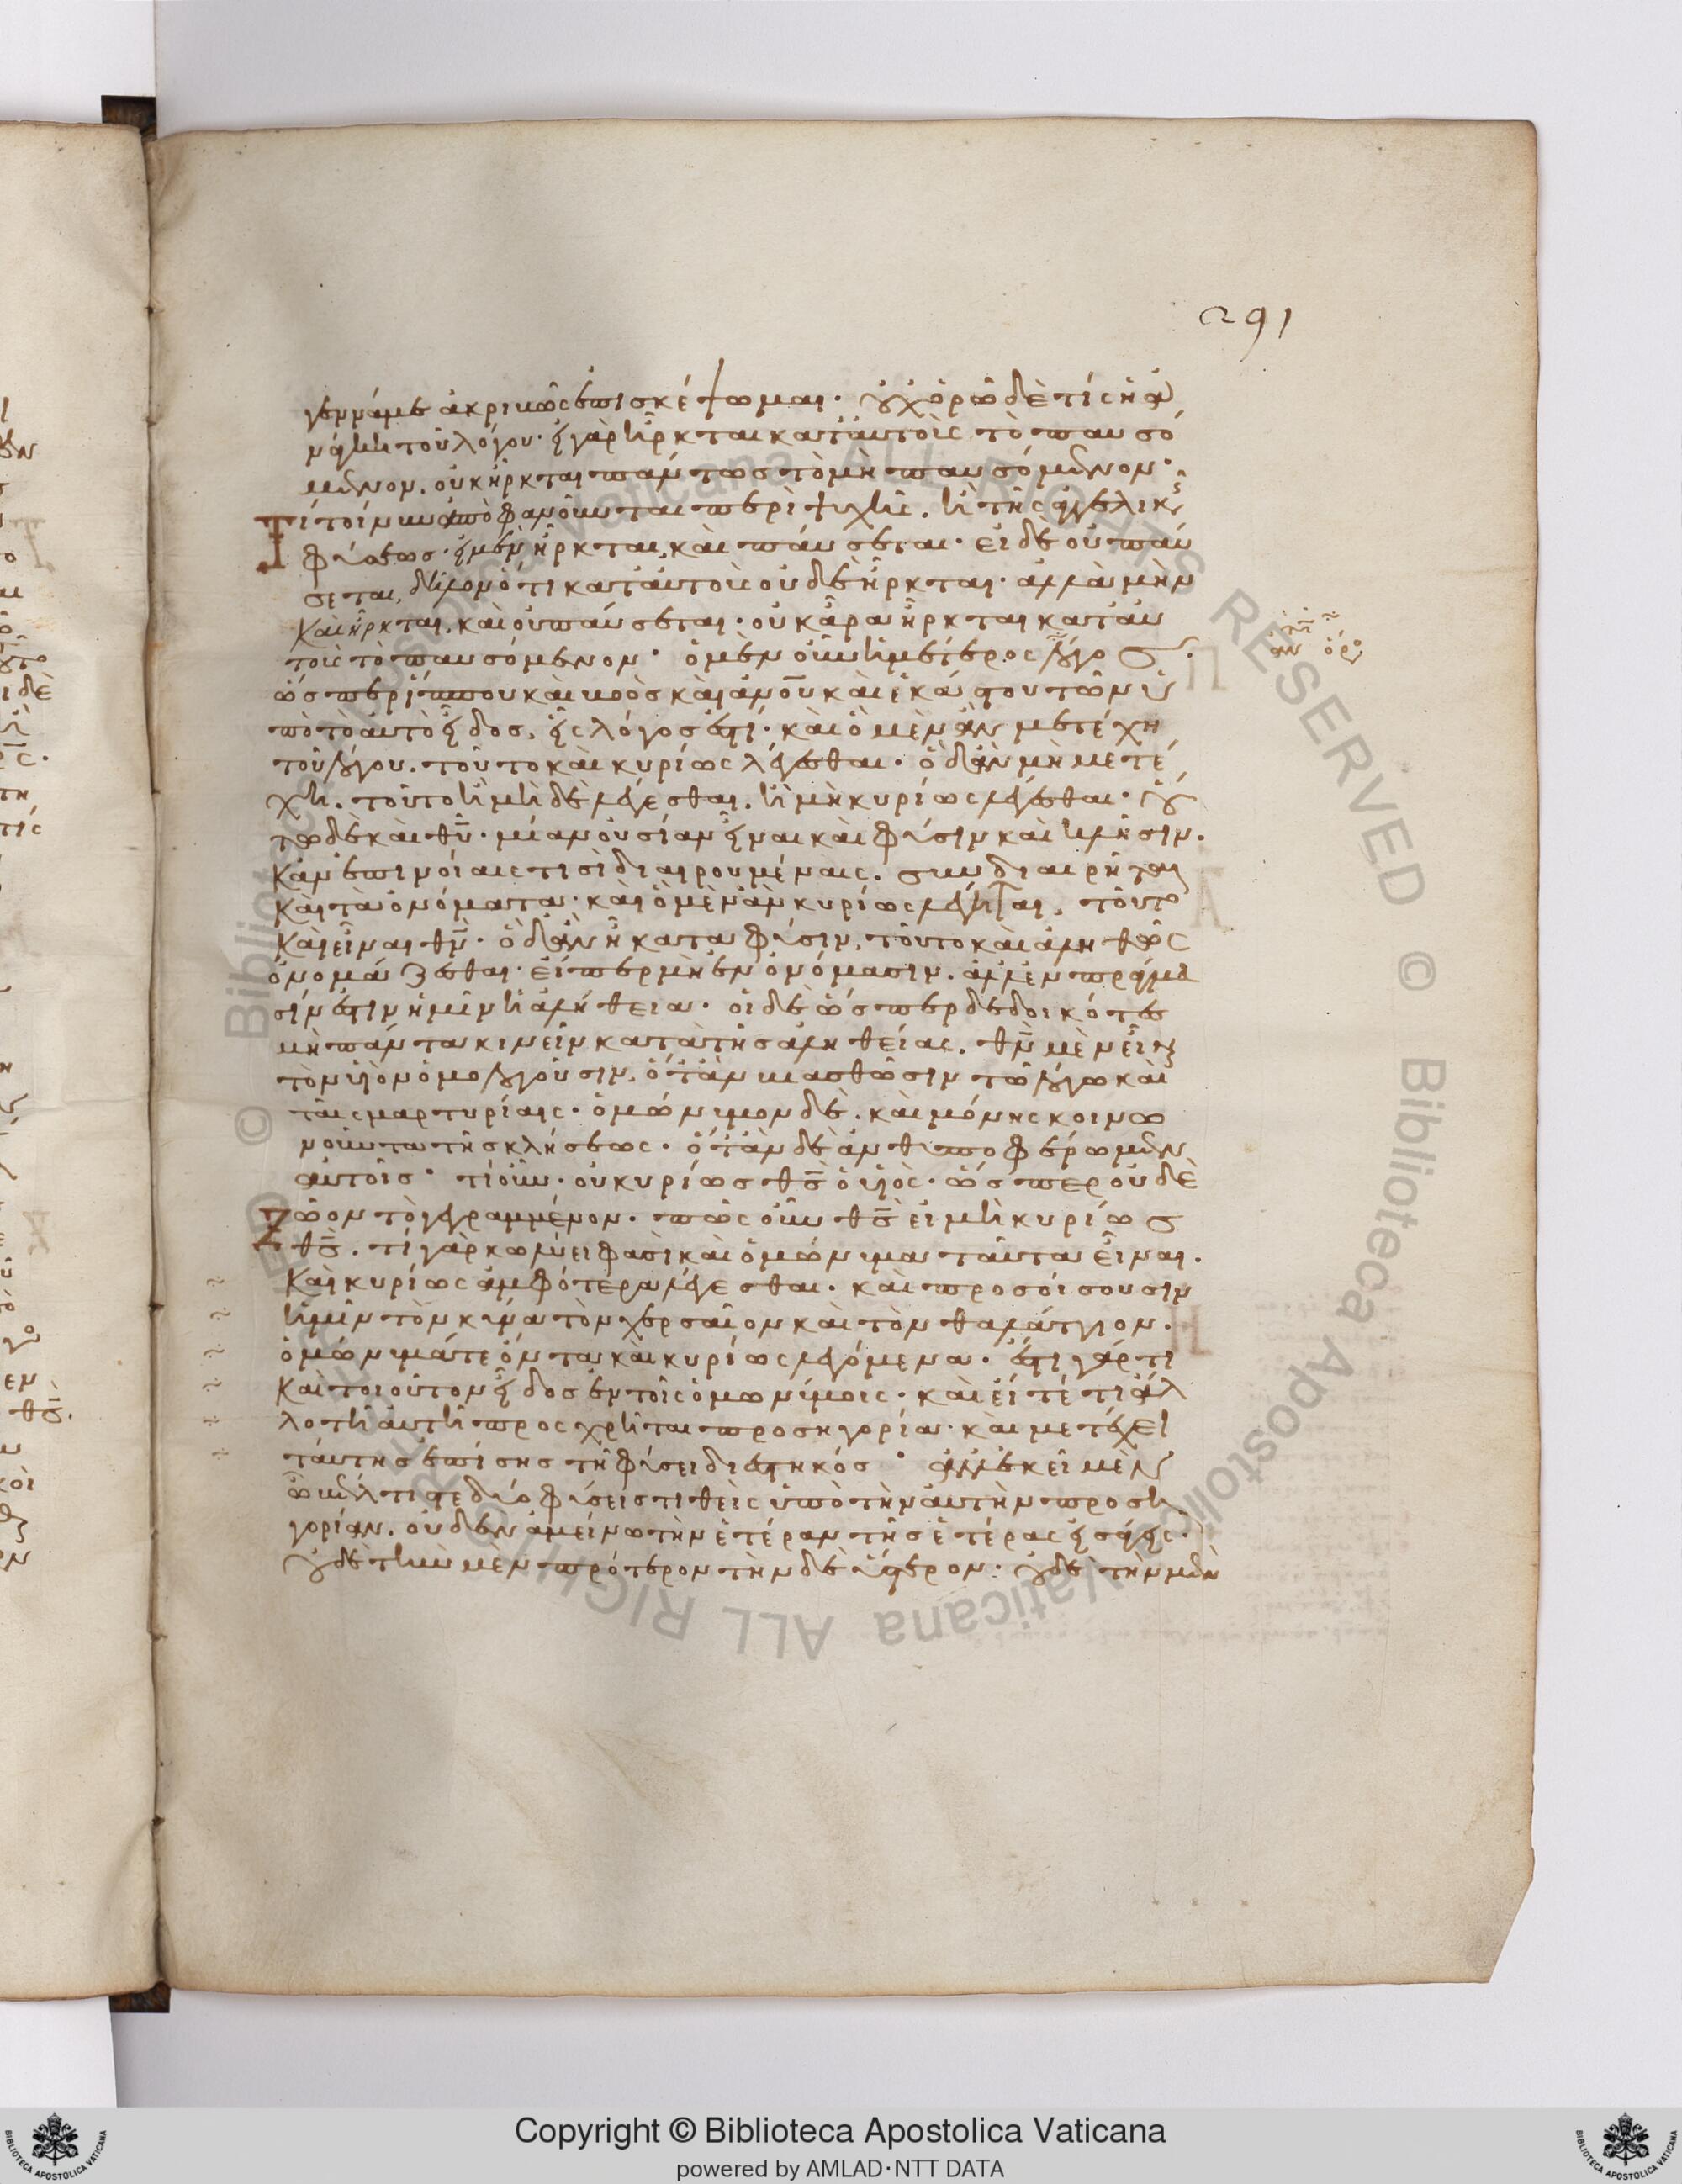 291
γεννᾶν με ἀκριβῶς ἐπισκέψωμαι. οὐχ ὁρῶ δὲ τίς ἡ ἀ
νάγκη τοῦ λόγου. εἰ γὰρ ἦρκται κατ' αὐτοὺς τὸ παυσό
μενον. οὐκ ἦρκται πάντως τὸ μὴ παυσόμενον.
Τί τοίνυν ἀποφανοῦνται περὶ ψυχῆς. ἢ τῆς ἀγγελικ
φύσεως. εἰ μὲν ἦρκται, καὶ παύσεται. εἰ δὲ οὐ παύ
σεται, δῆλον ὅτι κατ' αὐτοὺς οὐδὲ ἦρκται. ἀλλὰ μὴν
καὶ ἦρκται. καὶ οὐ παύσεται. οὐκ ἄρα ἦρκται κατ' αὐ
τοὺς τὸ παυσόμενον. ὁ μὲν οὖν ἡμέτερος λόγος.
ὥσπερ ἵππου καὶ βοὸς καὶ ἀνοῦ καὶ ἑκάστου τῶν ὑ
πὸ τὸ αὐτὸ εἶδος, εἷς λόγος ἐστί. καὶ ὃ μὲν ἂν μετέχη
τοῦ λόγου. τοῦτο καὶ κυρίως λέγεσθαι. ὃ δ' ἂν μὴ μετέ
χη. τοῦτο ἢ μὴ δὲ λέγεσθαι. ἢ μὴ κυρίως λέγεσθαι. οὕ
τω δὲ καὶ θῦ. μίαν οὐσίαν εἶναι καὶ φύσιν καὶ κλῆσιν.
κἂν ἐπινοίαις τισὶ διαιρουμέναις. συνδιαιρῆται
καὶ τὰ ὀνόματα. καὶ ὃ μὲν ἂν κυρίως λέγηται, τοῦτο
καὶ εἶναι θν. ὃ δ' ἂν ἦ κατὰ φύσιν, τοῦτο καὶ ἀληθῶς
ὀνομάζεσθαι. εἴπερ μὴ ἐν ὀνόμασιν. ἀλλ' ἐν πράγμα
σίν ἐστιν ἡμῖν ἡ ἀλήθεια. οἱ δὲ ὥσπερ δεδοικότες
μὴ πάντα κινεῖν κατὰ τῆς ἀληθείας. θν μὲν εἶναι
τὸν υἱὸν ὁμολογοῦσιν, ὅταν βιασθῶσιν τῶ λόγω καὶ
ταῖς μαρτυρίαις. ὁμώνυμον δὲ. καὶ μόνης κοινω
νοῦντα τῆς κλήσεως. ὅταν δὲ ἀνθυποφέρωμεν
αὐτοῖς. τί οὖν. οὐ κυρίως θς ὁ υἱὸς. ὥσπερ οὐδὲ
ζῶον τὸ γεγραμμένον. πῶς οὖν θς εἰ μὴ κυρίως
θς. τί γὰρ κωλύει φασὶ καὶ ὁμώνυμα ταῦτα εἶναι.
καὶ κυρίως ἀμφότερα λέγεσθαι. καὶ προσοίσουσιν
ἡμῖν τὸν κύνα τὸν χερσαῖον καὶ τὸν θαλάττιον.
ὁμώνυμά τε ὄντα καὶ κυρίως λεγόμενα. ἔστι γάρ τι
καὶ τοιοῦτον εἶδος ἐν τοῖς ὁμωνύμοις. καὶ εἴτέ τι ἄλ
λο τῆ αὐτῆ προσχρῆται προσηγορία. καὶ μετέχει
ταύτης ἐπίσης τῆ φύσει διεστηκός. ἀλλ' ἐκεῖ μὲν
ὦ βέλτιστε δύο φύσεις τιθεὶς ὑπὸ τὴν αὐτὴν προση
γορίαν. οὐδὲν ἀμείνω τὴν ἑτέραν τῆς ἑτέρας εἰσάγεις.
οὐδὲ τὴν μὲν πρότερον τὴν δὲ ὕστερον. οὐδὲ τὴν μὲν
Copyright © Biblioteca Apostolica Vaticana
powered by AMLAD·NTT DATA